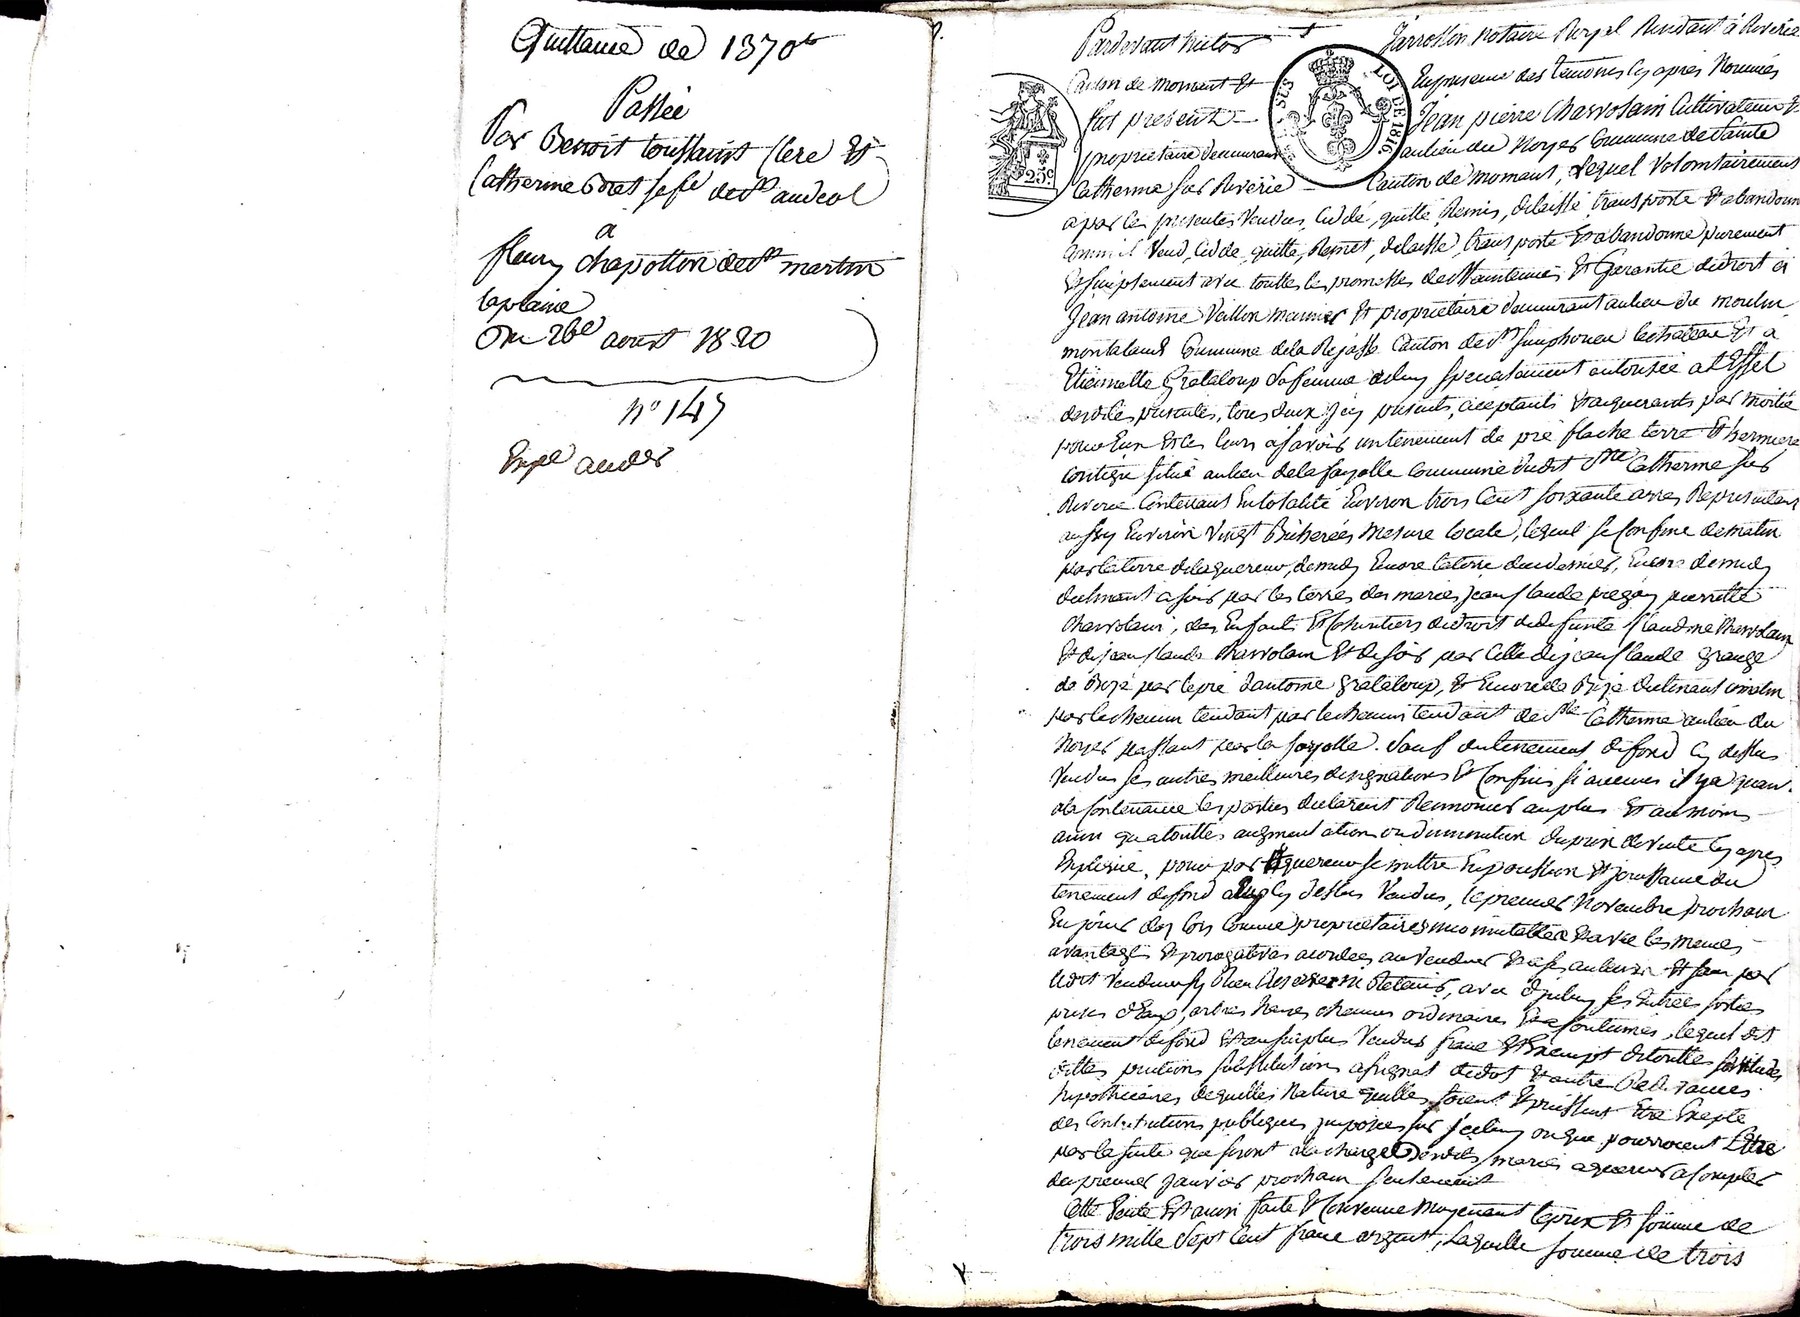 Quittance de 1370 lt
Passée
Par Benoit toussaint Clere Et
Catherine sa fe de St andeol
a
fleury chapotton de St martin
laplaine
Du 26e aoust 1820
n° 147
Expé aud
Pardevant Victor Jarrosson notaire Royal Residant à Riverie
Canton de Mornant Et En presence des temoins cy après Nommés
fut present Jean pierre Charvolain Cultivateur Et
proprietaire demeurant au lieu du Noyer Commune de Sainte
Catherine sur Riverie Canton de mornant, Lequel Volontairement
a par les presentes Vendu, Cedé, quitté, Remis, delaissé, transporté Et abandonné
Comme il Vend, Cede, quitte, Remet, delaisse, transporte Et abandonne purement
Et simplement avec toutte les promesses de Maintenue Et Garantie de droit à
Jean antoine Vallon meunier Et proprietaire demeurant au lieu du moulin
montaland Commune de la Rajasse Canton de St Simphorien le chateau Et à
Etiennette Grataloup sa femme de luy specialement autorisée a l'Effet
des dites presentes, tous deux Icy presents, aceptants Et aquerants par moitié
pour Eux Et les leurs a savoir un tenement de pré flache terre Et hermière
contigu situé au lieu de la fayolle Commune dudit Ste Catherine sur
Riverie Contenant En totalité Environ trois Cent soixante ares, Representant
aussy Environ Vingt Bicherées Mesure locale, lequel se Confine de matin
par la terre de laquereur, de midy Encore la terre dudernier, Encore de midy
declinant a soir par les terres des mariés jean Claude pierrette
Charvolain, des Enfants Et heritiers de droit de defunte Claudine Charvolain
Et de jean Claude Charvolain Et de soir par Celle de jean Claude Grange
de Bize par le pré d'antoine Grataloup, Et Encore de Bize declinant à matin
par le chemin tendant par le chemin tendant de Ste Catherine au lieu du
Noyer passant par la fayolle. Sauf du tenement de fond Cy dessus
Vendu ses autres meilleures designations Et Confins si aucuns il y a quant
a la Contenance les parties declarent Renoncer au plus Et au moins
ainsi qu a touttes augmentation ou diminution du prix de vente Cy après
Expliqué, pour par Aquereur se mettre En possession Et jouissance du
tenement de fond Cy dessus Vendus, le premier Novembre prochain
En jouir des lors Comme proprietaires incommutables Et avec les memes
avantages Et prerogatives acordées au Vendeur Et a ses auteurs Et sans par
ledit Vendeur sy Rien Reserver ni Retenir, avec d'iceluy ses Entrées sorties
prises d'Eaux, arbres hayes chemins ordinaires Et a Coutumés, lequel dit
tenement de fond Et au surplus Vendus franc Et Exempt de touttes servitudes
dettes pentions substitutions asignat de dot Et autre Redevances
hypothecaires de quelles Nature quelles soient Et puissent Etre Excepté
des Contributions publiques imposées sur Iceluy ou que pourroient Etre
par la suite qui seront a la charge desdits mariés aquereurs a Compter
du premier Janvier prochain seulement
Cette Vente Est ainsi faite Et Convenue Moyennant le prix Et somme de
trois mille sept Cent franc argent, Laquelle somme de trois
SUS
LOI DE 1816
25c